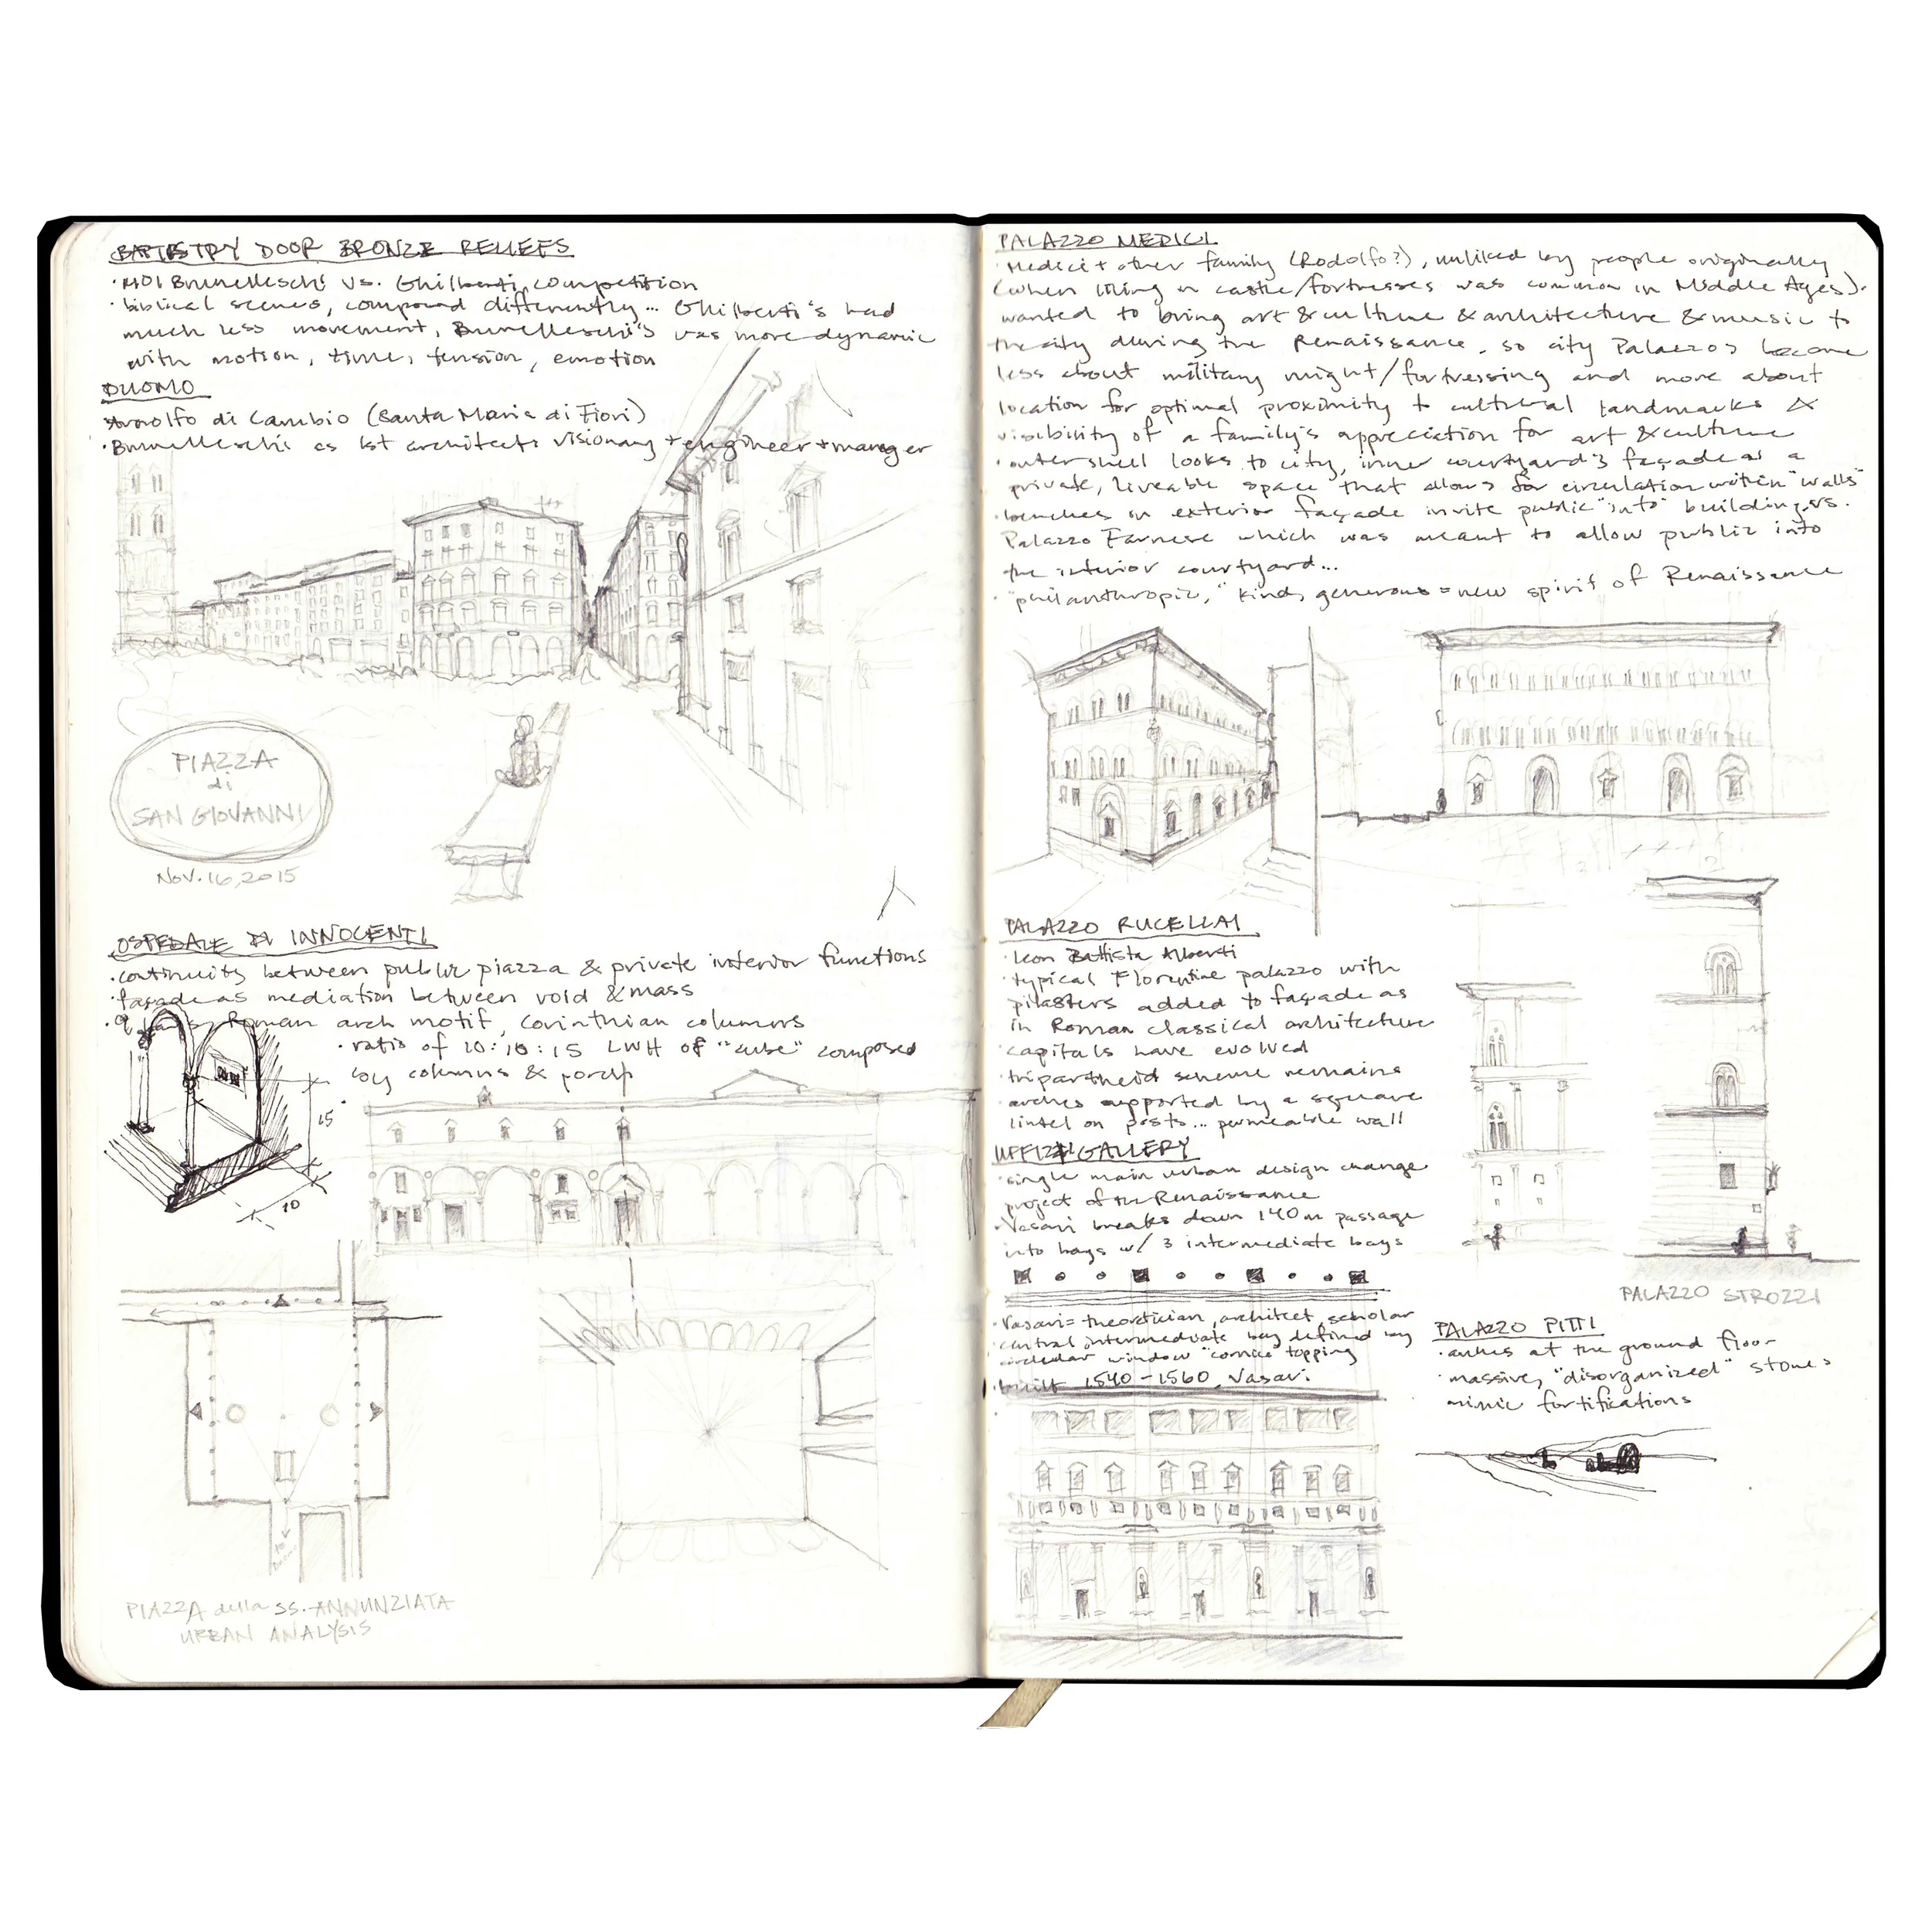 BAPTISTRY DOOR BRONZE RELIEFS
·1401 Brunelleschi vs. Ghilberti competition
·biblical scenes, compound differently... Ghilberti's had
much less movement, Brunelleschi's was more dynamic
with motion, time, tension, emotion
DUOMO
Arnolfo di Cambio (Santa Maria di Fiori)
·Brunelleschi as 1st architect: visionary + engineer + manager
PIAZZA
di
SAN GIOVANNI
NOV. 16, 2015
OSPEDALE DI INNOCENTI
·continuity between public piazza & private interior functions
·façade as mediation between void & mass
·9 bays, Roman arch motif, Corinthian columns
·ratio of 10:10:15 LWH of "cube" composed
by columns & porch
15
10
PIAZZA della SS. ANNUNZIATA
URBAN ANALYSIS
PALAZZO MEDICI
·Medici + other family (Rodolfo?), unliked by people originally
(when living in castle/fortresses was common in Middle Ages).
wanted to bring art & culture & architecture & music to
the city during the Renaissance, so city Palazzos become
less about military might/fortressing and more about
location for optimal proximity to cultural landmarks &
visibility of a family's appreciation for art & culture
·outer shell looks to city, inner courtyard's façade as a
private, liveable space that allows for circulation within "walls"
·benches on exterior façade invite public "into" building, vs.
Palazzo Farnese which was meant to allow public into
the interior courtyard...
·"philanthropic," kind, generous = new spirit of Renaissance
PALAZZO RUCELLAI
·Leon Battista Alberti
·typical Florentine palazzo with
pilasters added to façade as
in Roman classical architecture
·capitals have evolved
·tripartheid scheme remains
·arches supported by a square
lintel on posts... permeable wall
UFFIZI GALLERY
·single main urban design change
project of the Renaissance
·Vasari breaks down 140m passage
into bays w/ 3 intermediate bays
·Vasari = theoretician, architect, scholar
·central intermediate bay defined by
circular window "cornice" topping
·built 1540-1560, Vasari
PALAZZO STROZZI
PALAZZO PITTI
·arches at the ground floor
·massive, "disorganized" stones
mimic fortifications